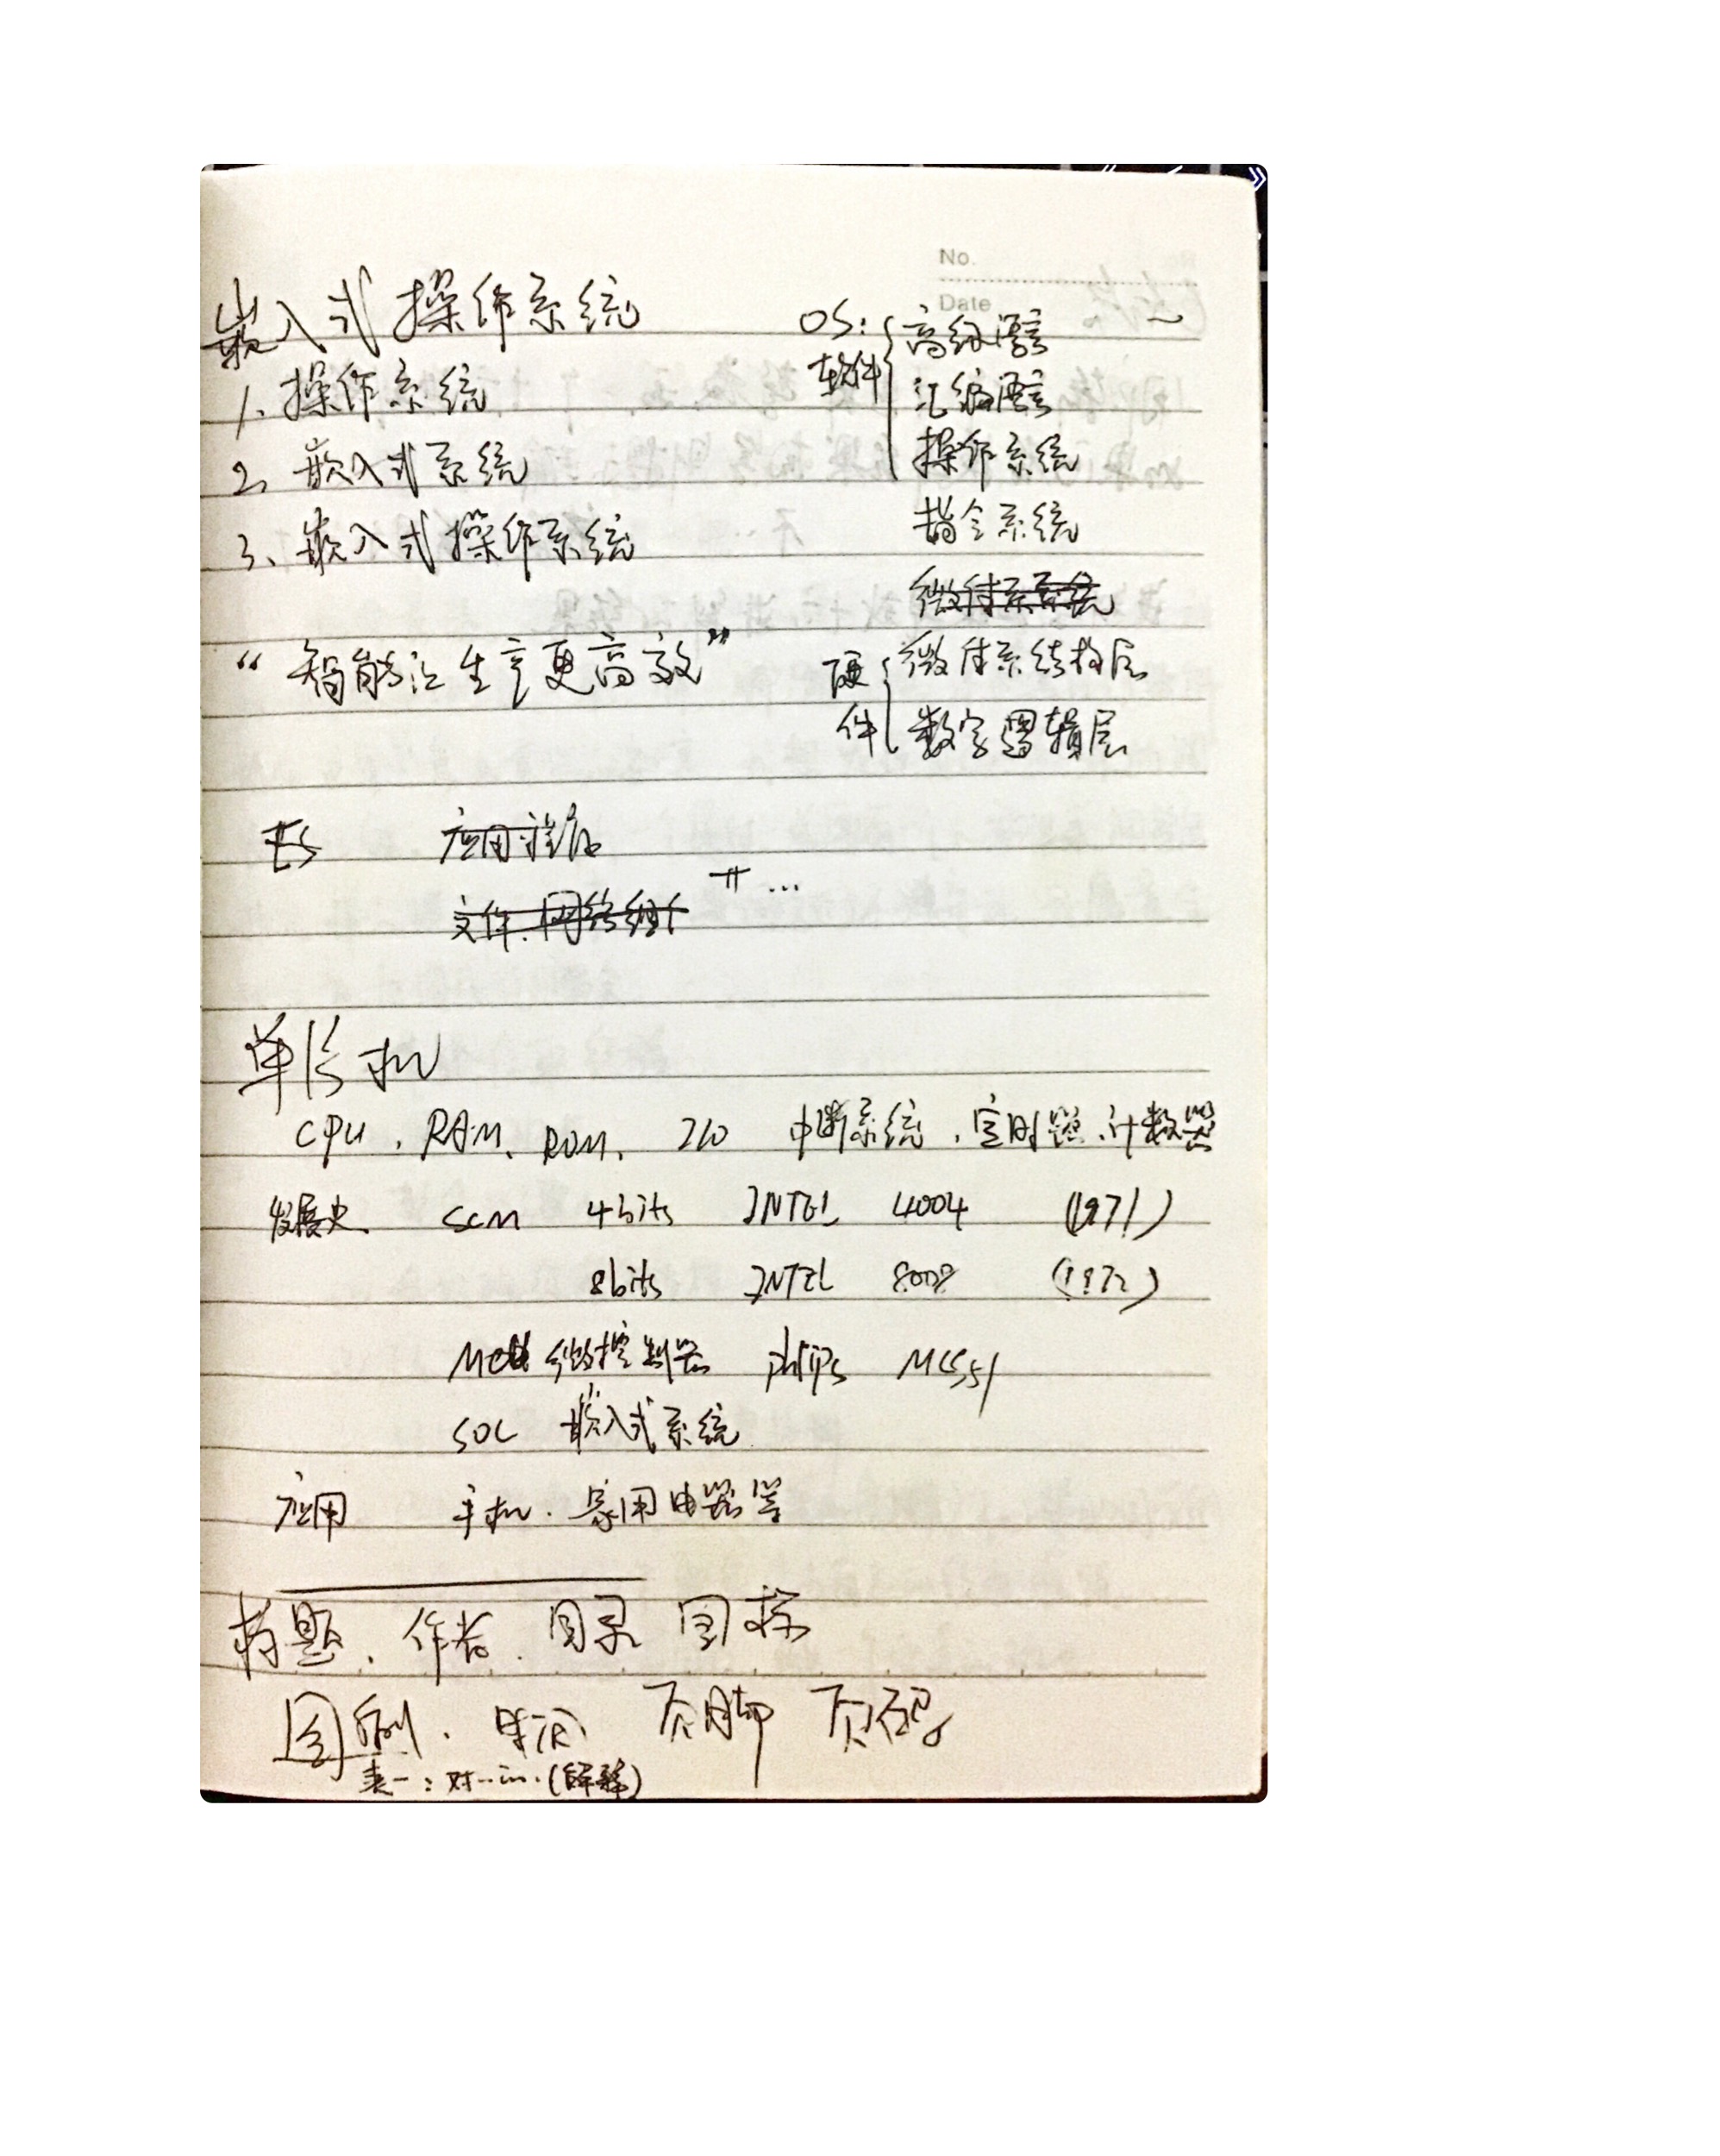 No.
Date
嵌入式操作系统
1、操作系统
2、嵌入式系统
3、嵌入式操作系统
“智能让生产更高效”
OS:
软件
高级语言
汇编语言
操作系统
指令系统
硬件
微体系结构层
数字逻辑层
ES
应用
文件、网络组件
...
单片机
CPU、RAM、ROM、I/O 中断系统、定时器、计数器
发展史 SCM 4bits INTEL 4004 (1971)
8bits INTEL 8008 (1972)
MCU 微控制器 philips MCS51
SOC 嵌入式系统
应用 手机、家用电器等
标题、作者、目录 图标
图例、时间 页脚 页码
表一：对…的…(解释)